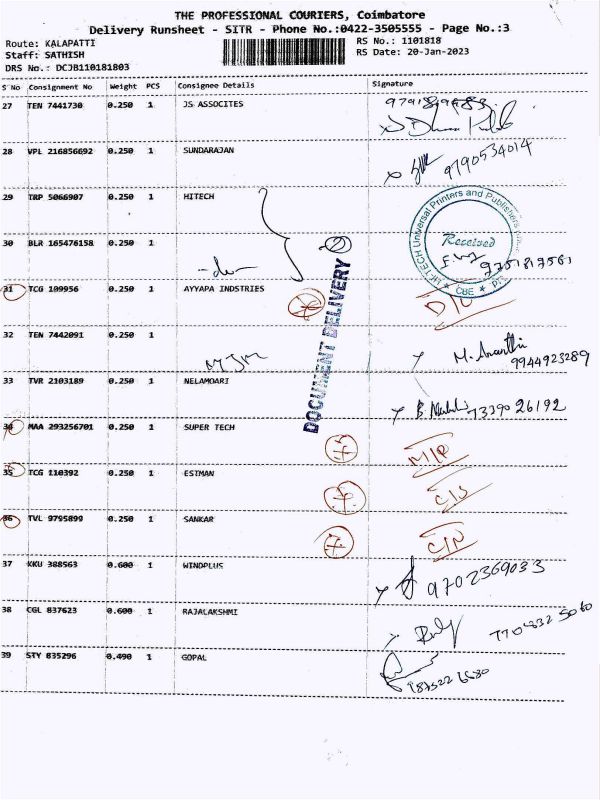 THE PROFESSIONAL COURIERS, Coimbatore
Delivery Runsheet - SITR - Phone No.:0422-3505555 - Page No.:3
Route: KALAPATTI RS No.: 1101818
Staff: SATHISH RS Date: 20-Jan-2023
DRS No.: DCJB110181803
S No Consignment No Weight PCS Consignee Details Signature
27 TEN 7441730 0.250 1 JS ASSOCITES
28 VPL 216856692 0.250 1 SUNDARAJAN 9790534014
29 TRP 5066907 0.250 1 HITECH
HI-TECH Universal Printers and Publishers
Received
CBE
30 BLR 165476158 0.250 1 9751817581
DOCUMENT DELIVERY
31 TCG 109956 0.250 1 AYYAPA INDSTRIES D/L
32 TEN 7442091 0.250 1 M. Ananthi 9944923289
33 TVR 2103189 0.250 1 NELAMOARI 7339026192
34 MAA 293256701 0.250 1 SUPER TECH M/R
35 TCG 110392 0.250 1 ESTMAN C/S
36 TVL 9795899 0.250 1 SANKAR C/N
37 KKU 388563 0.600 1 WINDPLUS 9702369033
38 CGL 837623 0.600 1 RAJALAKSHMI
39 STY 835296 0.490 1 GOPAL